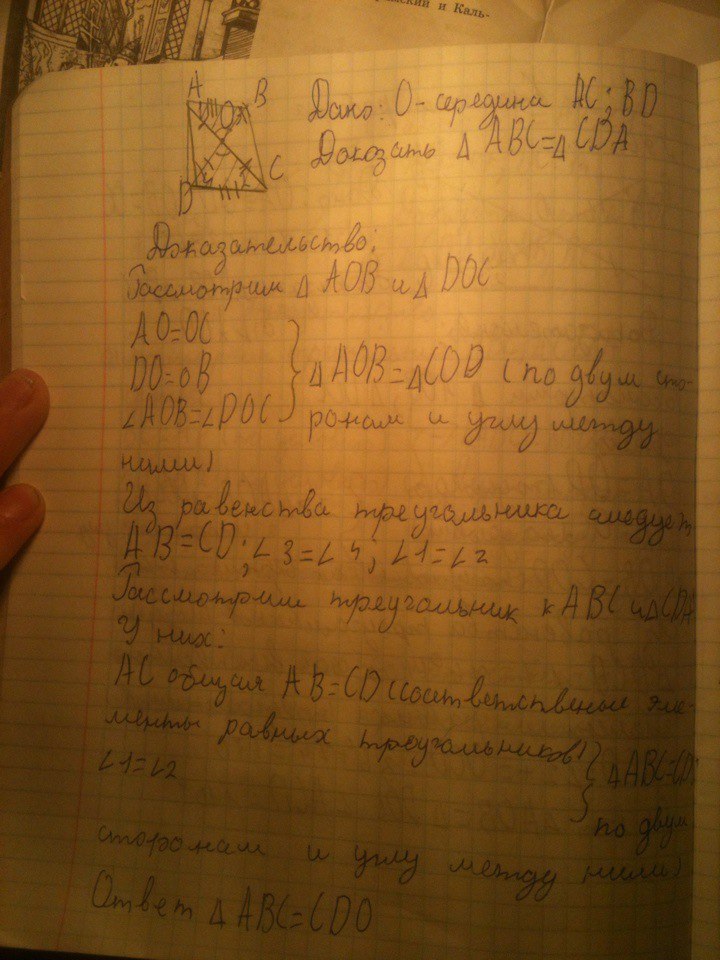 мский и Каль-
A
B
C
D
O
Дано: O-середина AC; BD
Доказать △ ABC=△ CDA
Доказательство:
Рассмотрим △ AOB и △ DOC
AO=OC
DO=OB
∠AOB=∠DOC
△ AOB=△COD (по двум сто-
ронам и углу между
ними)
Из равенства треугольника следует
AB=CD; ∠3=∠4, ∠1=∠2
Рассмотрим треугольник ABC и △CDA
У них:
AC общая AB=CD (соответственое эле-
менты равных треугольников)
∠1=∠2
△ABC=CD
по двум
сторонам и углу между ними)
Ответ △ ABC=CDO